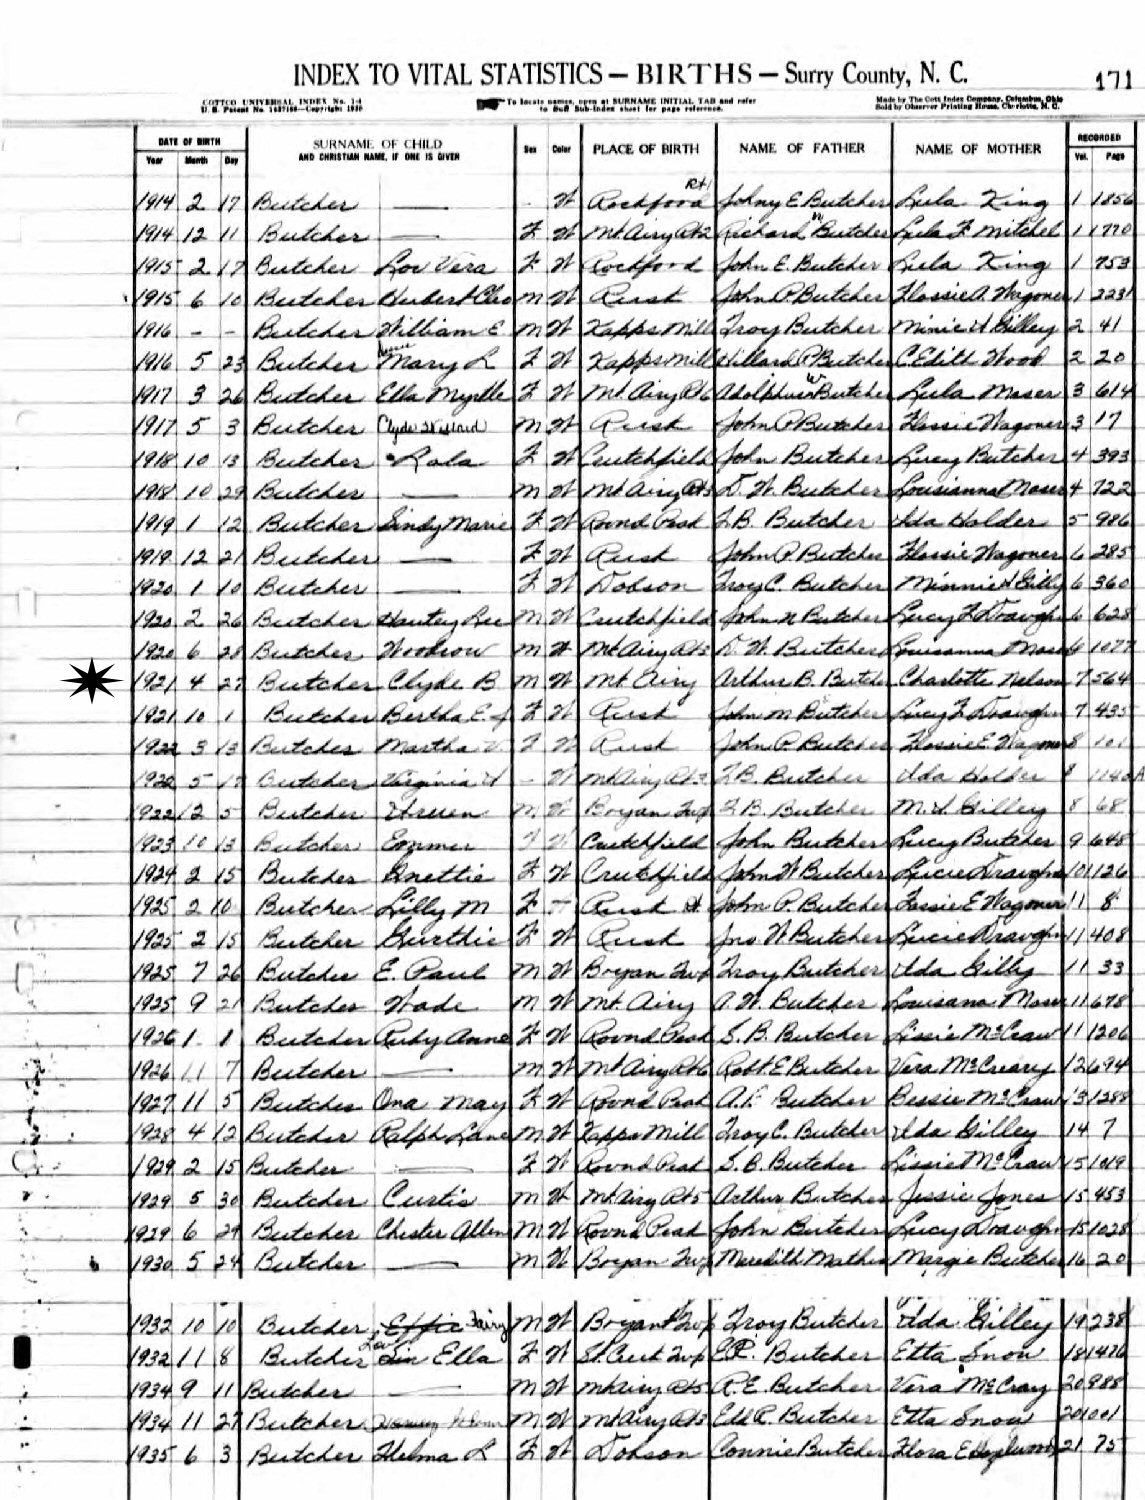 INDEX TO VITAL STATISTICS — BIRTHS — Surry County, N. C. 171
COTTCO UNIVERSAL INDEX No. 1-4 To locate names, open at SURNAME INITIAL TAB and refer Made by The Cott Index Company, Columbus, Ohio
U. S. Patent No. Copyright to Buff Sub-Index sheet for page reference. Sold by Observer Printing House, Charlotte, N. C.
DATE OF BIRTH SURNAME OF CHILD Sex Color PLACE OF BIRTH NAME OF FATHER NAME OF MOTHER RECORDED
Year Month Day AND CHRISTIAN NAME, IF ONE IS GIVEN Vol. Page
1914 2 17 Butcher — W Rockford Rt 1 Johny E Butcher Lula King 1 1856
1914 12 11 Butcher — F W Mt Airy Rt 2 Richard Butcher Lula F Mitchel 1 1770
1915 2 17 Butcher Lou Vera F W Rockford John E. Butcher Lula King 1 753
1915 6 10 Butcher Hubert Cleo M W Rusk John P Butcher Flossie A. Wagoner 1 2231
1916 - - Butcher William E M W Kapps Mill Troy Butcher Minie Gilley 2 41
1916 5 23 Butcher Mary L F W Kapps Mill Willard P Butcher C Edith Wood 2 20
1917 3 26 Butcher Ella Myrtle F W Mt Airy Rt 6 Adolphus W Butcher Lula Moser 3 614
1917 5 3 Butcher Clyde Willard M W Rusk John P Butcher Flossie Wagoner 3 17
1918 10 13 Butcher Lola F W Crutchfield John Butcher Lucy Butcher 4 393
1918 10 29 Butcher — M W Mt Airy Rt 3 D. W. Butcher Louisianna Moser 4 722
1919 1 12 Butcher Sindy Marie F W Round Peak Butcher Ida Holder 5 986
1919 12 21 Butcher — F W Rusk John P Butcher Flossie Wagoner 6 285
1920 1 10 Butcher — F W Dobson Troy C. Butcher Minnie Gilly 6 360
1920 2 26 Butcher Lee M W Crutchfield John N Butcher Lucy F Draughn 6 628
1920 6 28 Butcher Woodrow M W Mt Airy Rt 3 D. W. Butcher Louisanna Moser 6 1077
1921 4 27 Butcher Clyde B M W Mt Airy Arthur B. Butcher Charlotte Nelson 7 564
1921 10 1 Butcher Bertha E. F W Rusk John M Butcher Lucy F Draughn 7 435
1922 3 13 Butcher Martha V F W Rusk John P. Butcher Flossie E. Wagoner 8 101
1922 5 17 Butcher Virginia - W Mt Airy Rt 3 Butcher Ida Holder 8 1140 A
1922 12 5 Butcher M W Bryan Twp Butcher Gilley 8 68
1923 10 13 Butcher Emmer F W Crutchfield John Butcher Lucy Butcher 9 648
1924 2 15 Butcher Gnettie F W Crutchfield John W Butcher Lucie Draughn 10 1126
1925 2 10 Butcher Lilly M F W Rusk John P. Butcher Flossie E Wagoner 11 8
1925 2 15 Butcher Gurthie F W Rusk Jno W Butcher Lucie Draughn 11 408
1925 7 26 Butcher E. Paul M W Bryan Twp Troy Butcher Ida Gilly 11 33
1925 9 21 Butcher Wade M W Mt. Airy A. W. Butcher Louisana Moser 11 678
1926 1 8 Butcher Ruby Anne F W Round Peak S. B. Butcher Lissie McCraw 11 1206
1926 11 7 Butcher — M W Mt Airy Rt 6 Robt E Butcher Vera McCreary 12 694
1927 11 5 Butcher Ona May F W Round Peak Butcher Bessie McCraw 13 1288
1928 4 12 Butcher Ralph Lane M W Kapps Mill Troy C. Butcher Ida Gilley 14 7
1929 2 15 Butcher — F W Round Peak S. B. Butcher Lissie McCraw 15 1019
1929 5 30 Butcher Curtis M W Mt Airy Rt 5 Arthur Butcher Jessie Jones 15 453
1929 6 29 Butcher Chester Allen M W Round Peak John Butcher Lucy Draughn 15 1028
1930 5 24 Butcher — M W Bryan Twp Meredith Mathis Margie Butcher 16 20
1932 10 10 Butcher Effie Fairy M W Bryant Twp Troy Butcher Ida Gilley 19 238
1932 11 8 Butcher Ella F W Butcher Etta Snow 18 1476
1934 9 11 Butcher — M W Mt Airy Rt 5 R. E. Butcher Vera McCray 20 988
1934 11 27 Butcher M W Mt Airy Rt 3 Edd R. Butcher Etta Snow 20 1001
1935 6 3 Butcher Thelma L F W Dobson Connie Butcher Flora E 21 75